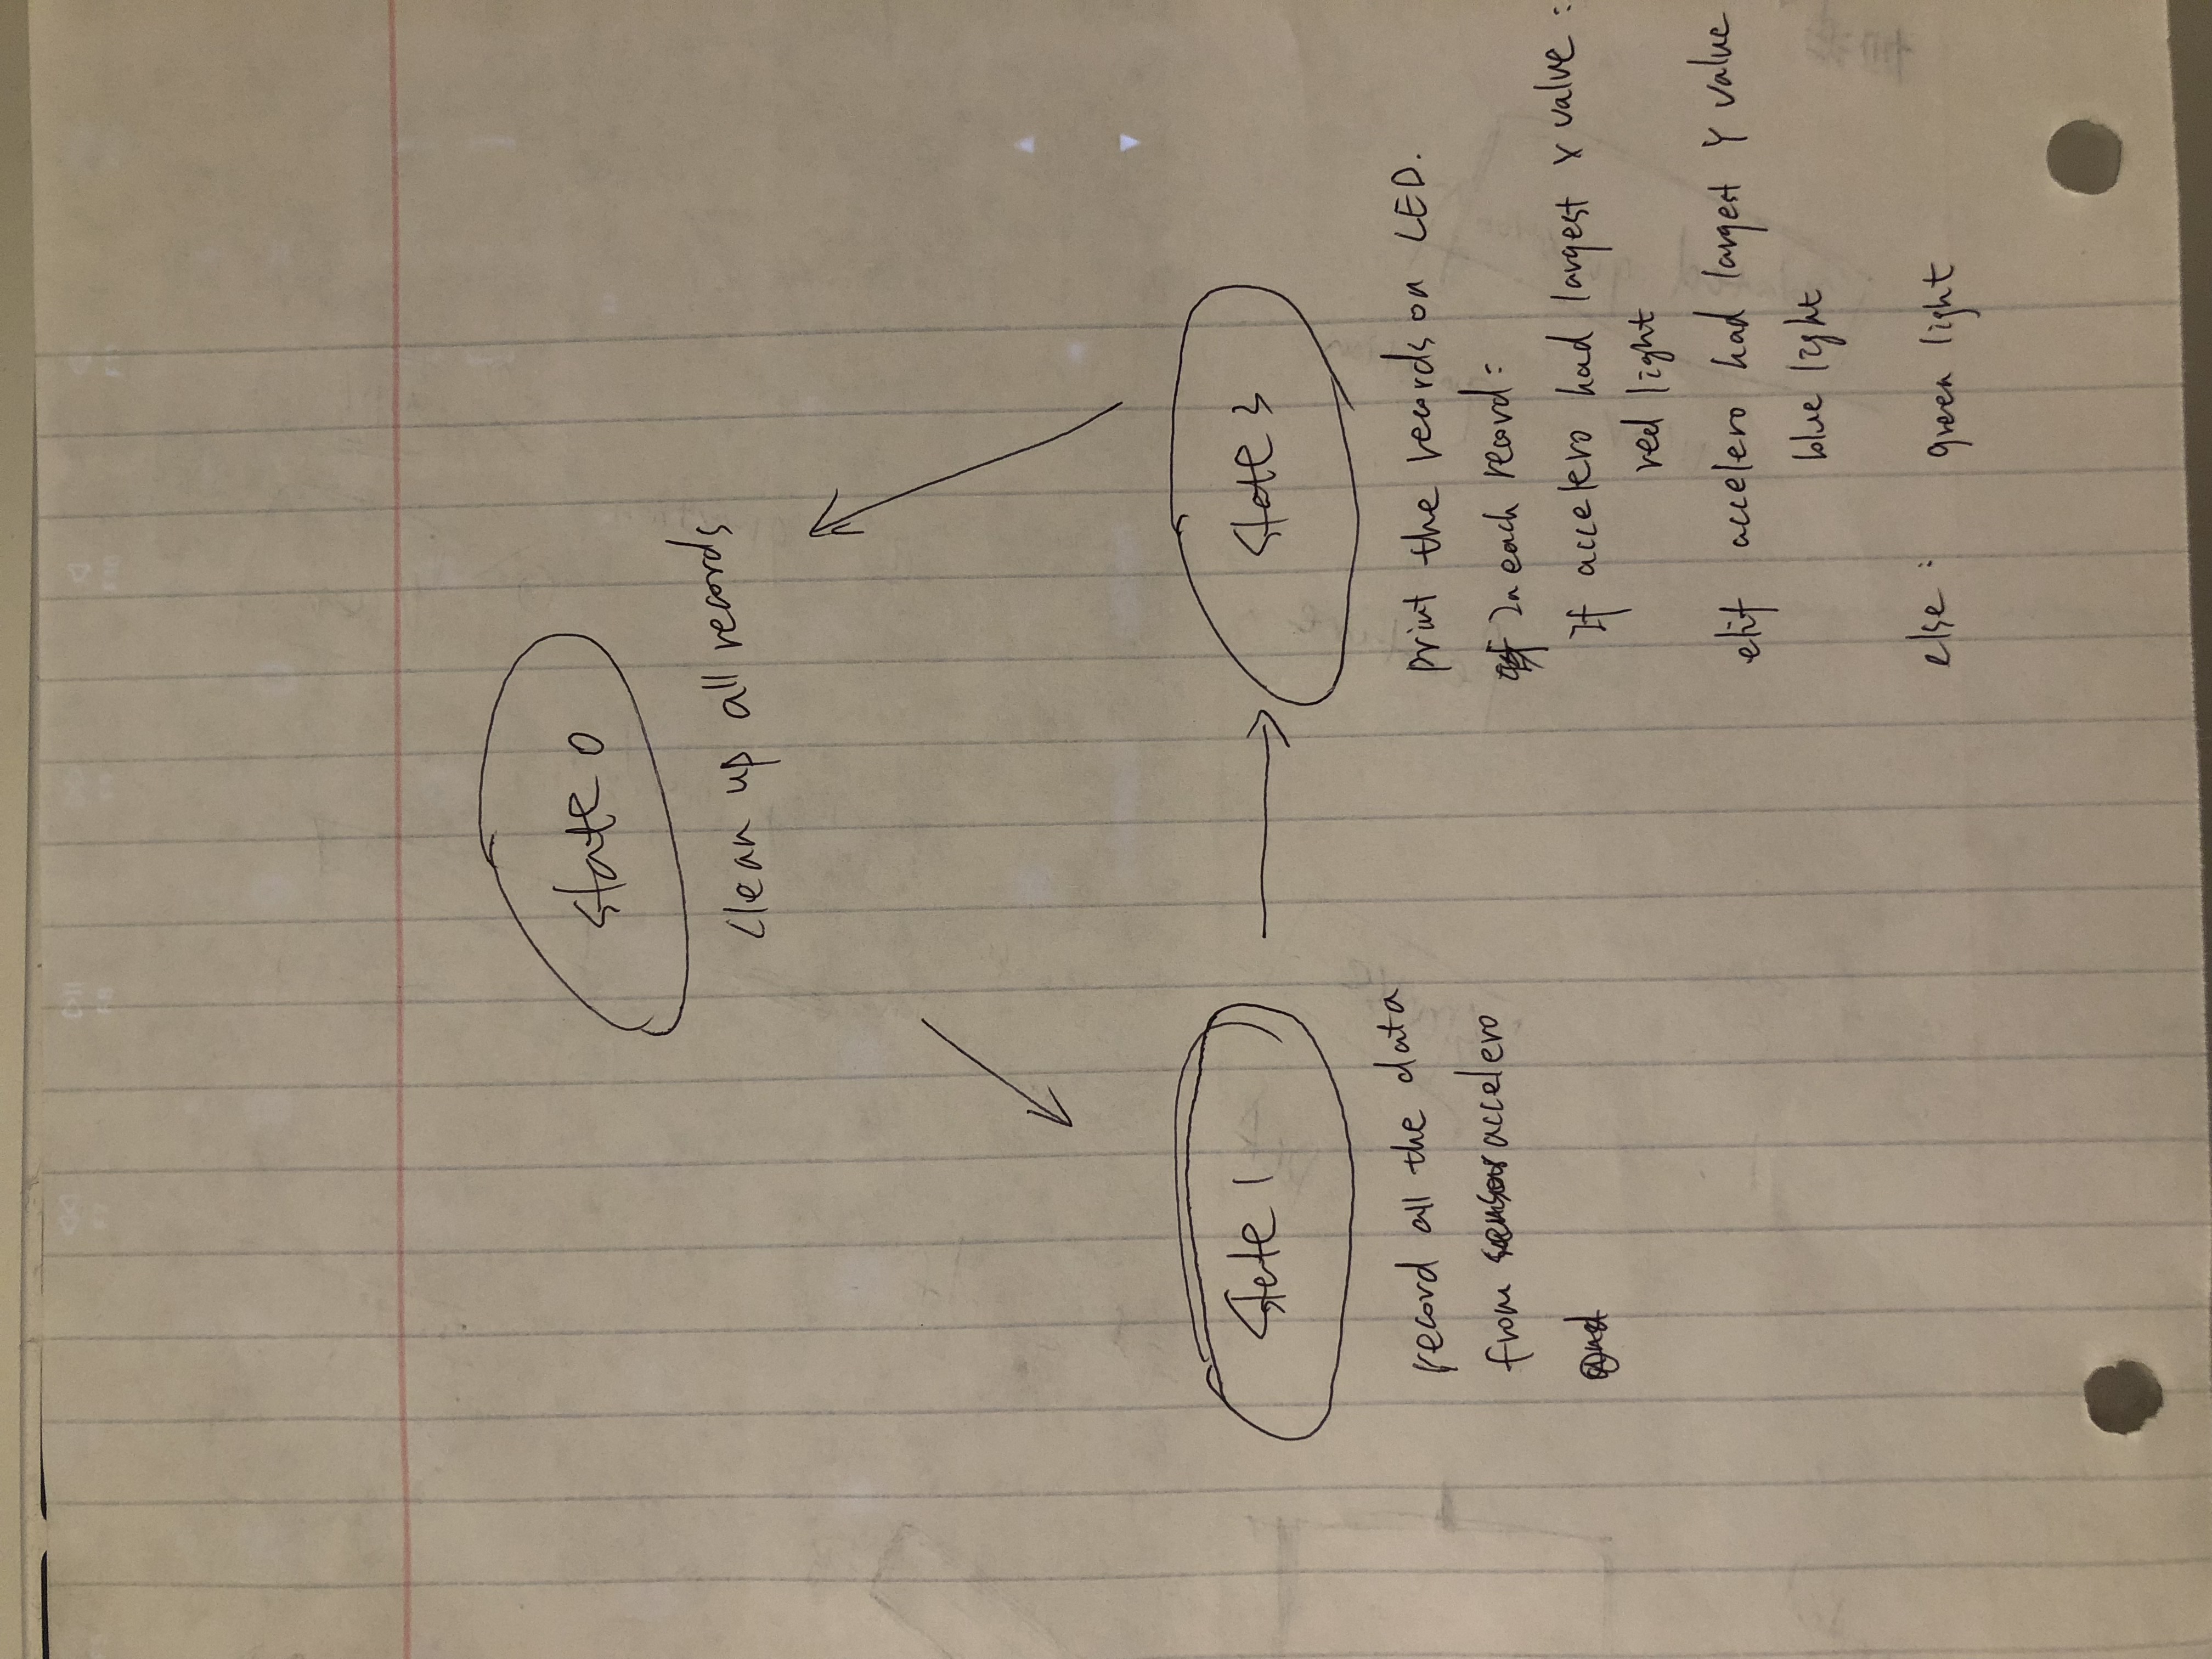 state 0
clean up all records
state 1
state 3
record all the data
from sensor accelero
and
print the records on LED.
In each record:
If accelero had largest x value:
red light
elif accelero had largest Y value
blue light
else: green light